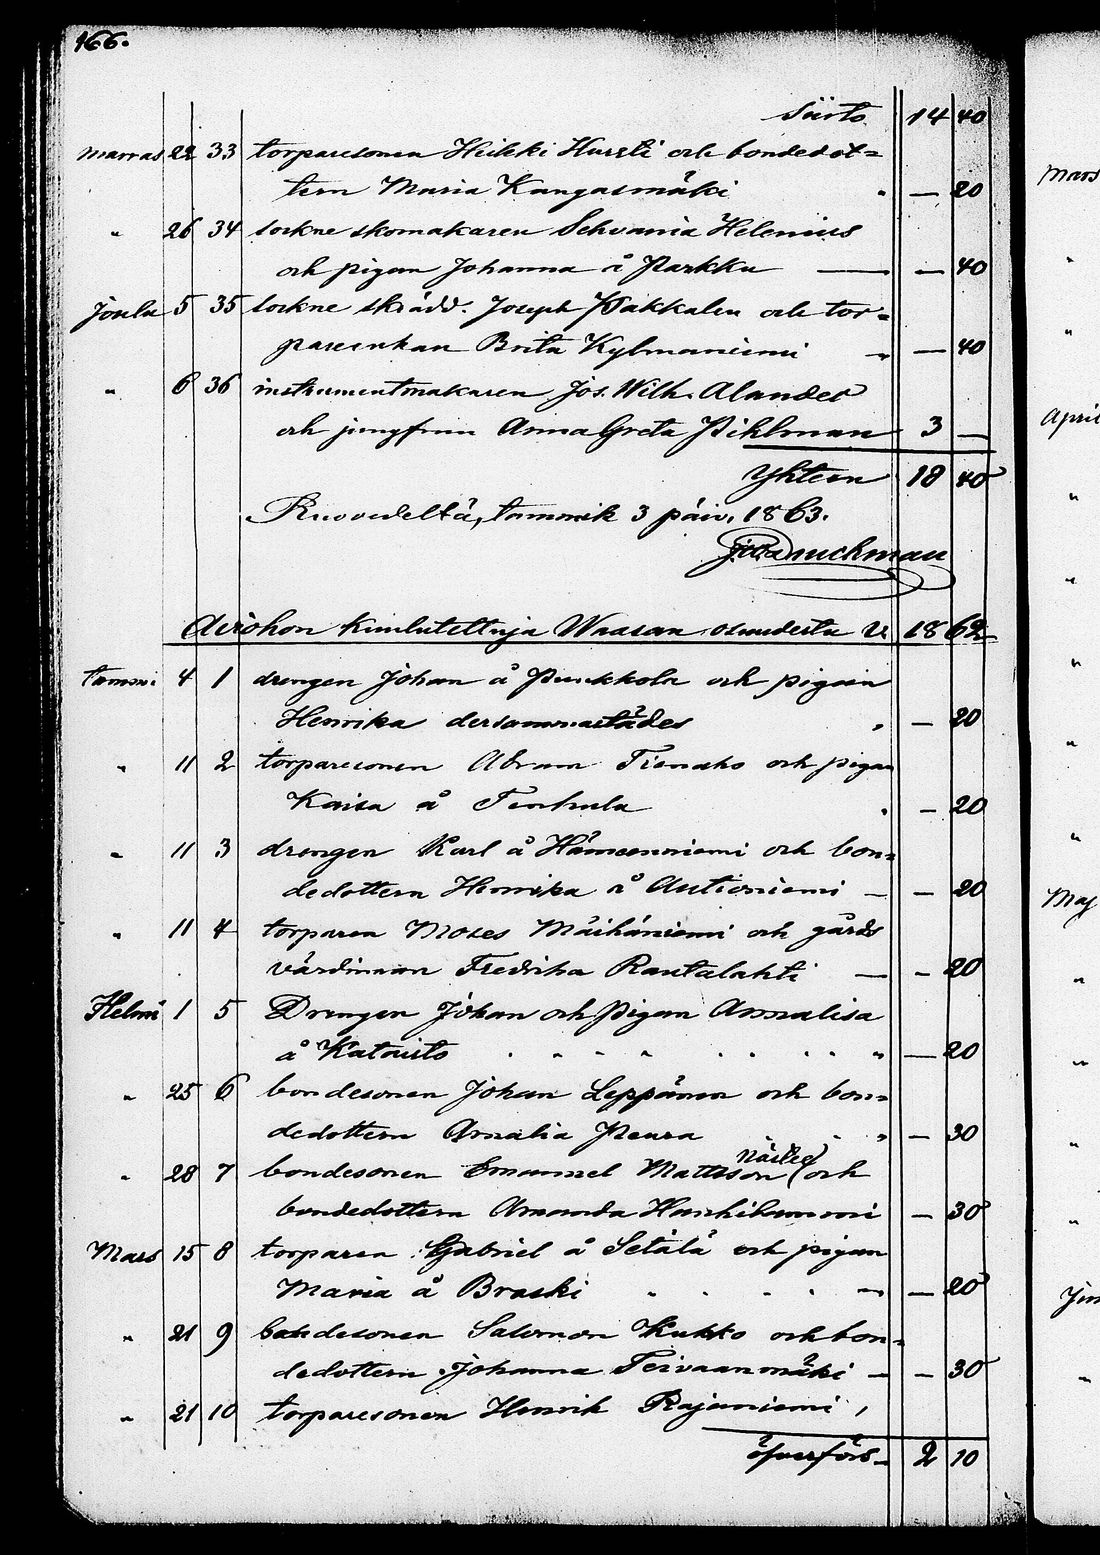 166.
Siirto 14 40
Marras 22 33 torparesonen Heikki Hursti och bondedot=
tern Maria Kangasmäki " — 20
" 26 34 sockne skomakaren Sehvania Helenius
och pigan Johanna å Parkku — — 40
Joulu 5 35 sockne skrädd. Joseph Pakkalen och tor=
pareenkan Brita Kylmaniemi " — 40
" 6 36 instrumentmakaren Jos. Wilh. Alander
och jungfrun Anna Greta Pihlman 3 —
Yhteen 18 40
Ruovedeltä, tammik 3 päiv. 1863.
Avioihon kuulutettuja Waasan osuudesta v. 1862
tammi. 4 1 drengen Johan å Puukkola och pigan
Henrika dersammastädes " — 20
" 11 2 torparesonen Abram Tienaho och pigan
Kaisa å Tenhula " — 20
" 11 3 drengen Karl å Hämeenniemi och bon=
dedottern Henrika å Autioniemi — — 20
" 11 4 torparen Moses Mäihäniemi och gårds
värdinnan Fredrika Rautalahti — — 20
Helmi 1 5 Drengen Johan och Pigan Annalisa
å Katvisto " — 20
" 25 6 bondesonen Johan Leppänen och bon=
dedottern Amalia Peura " — 30
" 28 7 bondesonen Emanuel Mattsson (Närhes) och
bondedottern Amanda Hanhikumi — 30
Mars 15 8 torparen Gabriel å Setälä och pigan
Maria å Braski — — 20
" 21 9 bondesonen Salomon Kukko och bon=
dedottern Johanna Teivaanmäki — — 30
" 21 10 torparesonen Henrik Rajaniemi,
öfverförs 2 10
Mars
"
"
April
"
"
"
"
"
Maj
"
"
"
"
"